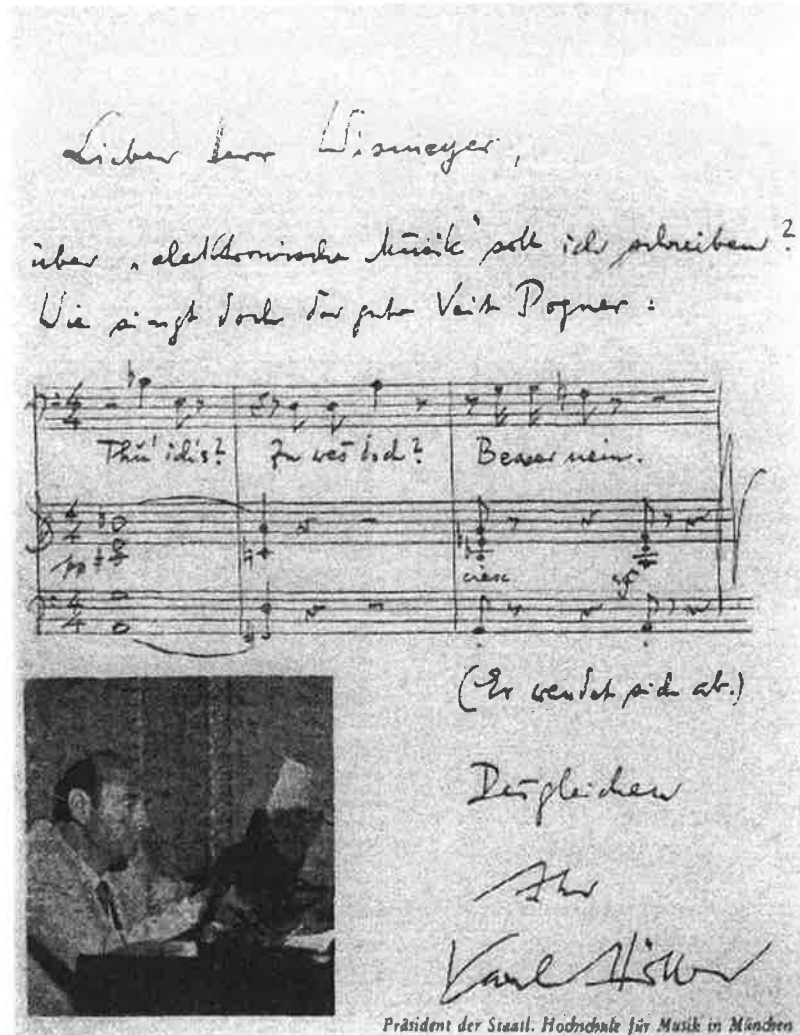 Lieber Herr Wismeyer,
über „elektronische Musik“ soll ich schreiben?
Wie singt doch der gute Veit Pogner:
Thu' ich's? Zu was doch? Besser nein.
pp cresc sf
(Er wendet sich ab.)
Desgleichen
Ihr
Karl Höller
Präsident der Staatl. Hochschule für Musik in München